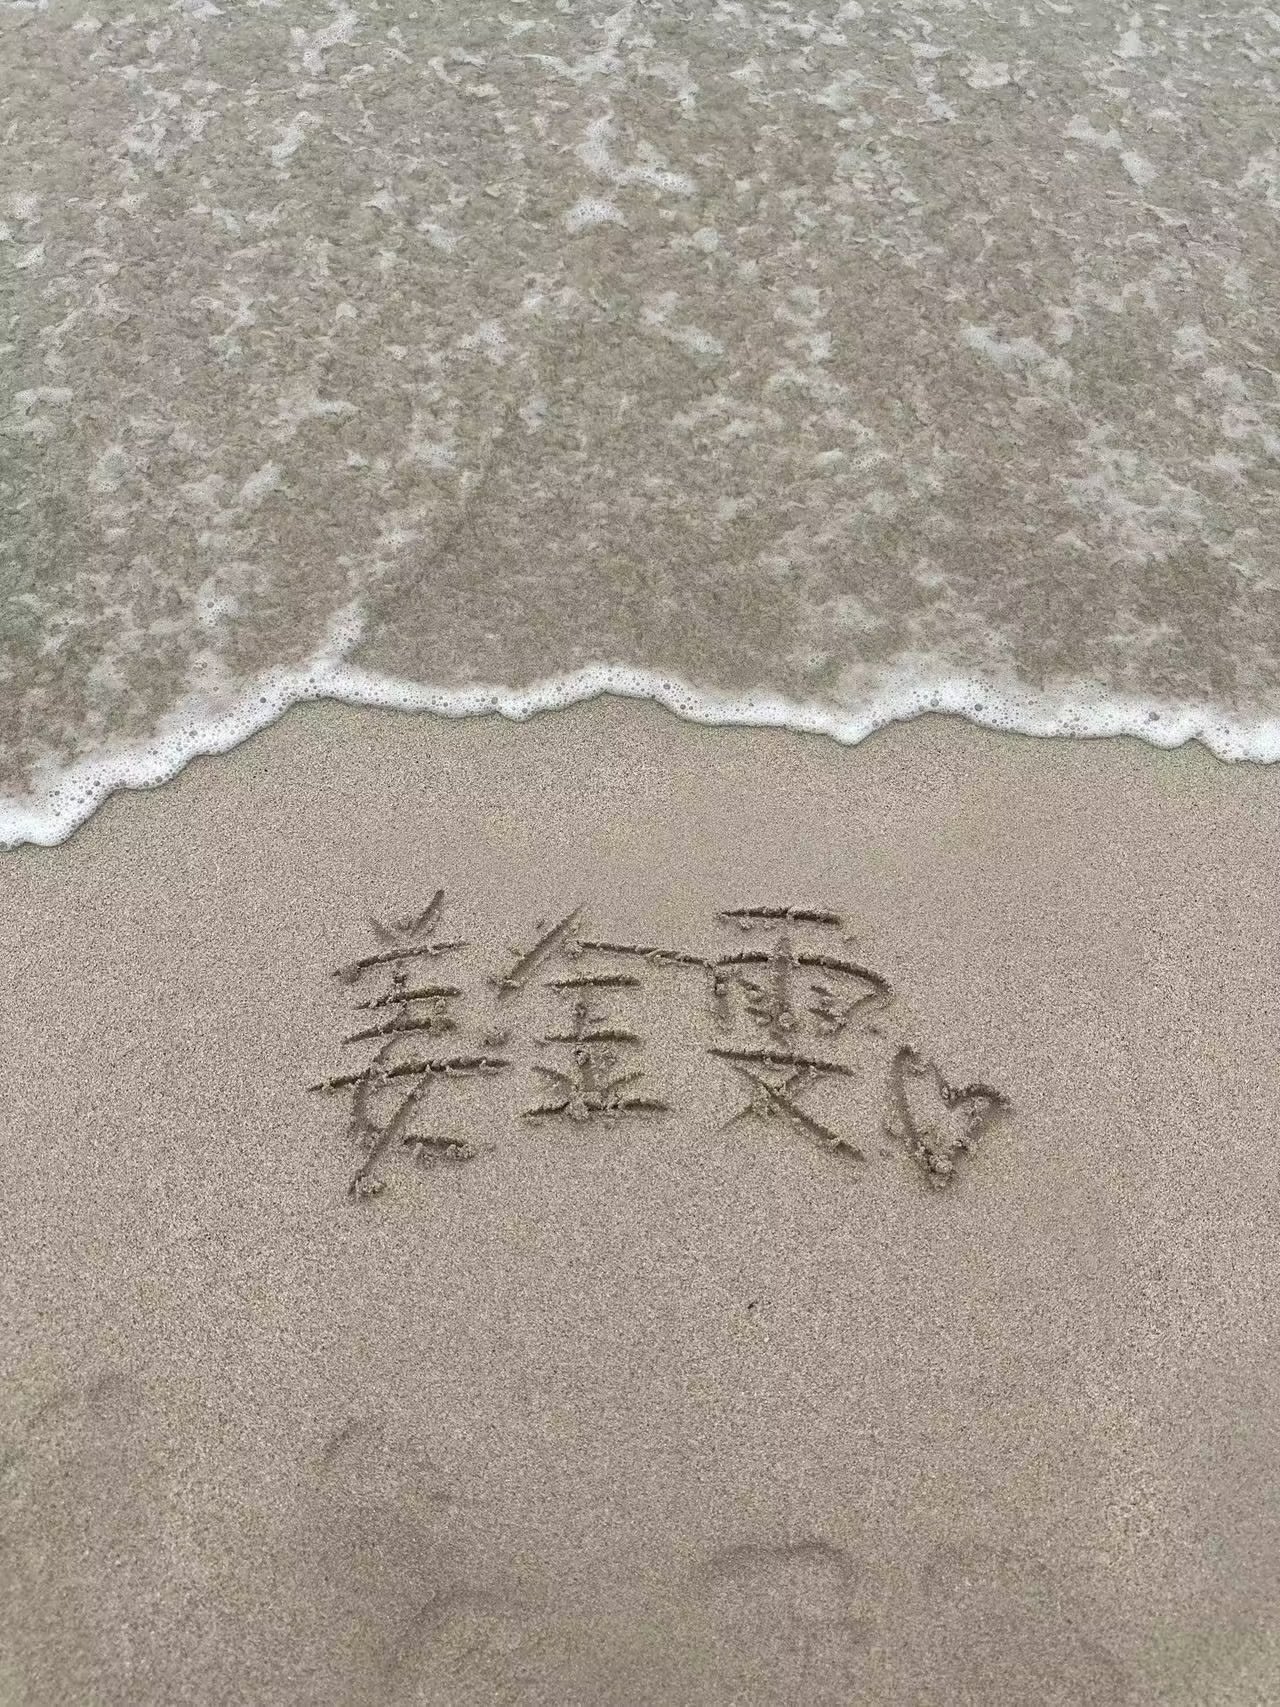 姜金雯♡